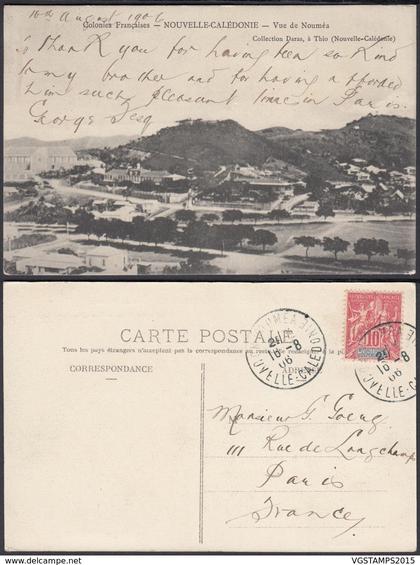 16th August 1906
Colonies Françaises — NOUVELLE-CALÉDONIE — Vue de Nouméa
Collection Daras, à Thio (Nouvelle-Calédonie)
Thank you for having been so kind
to my brother and for having afforded
him such pleasant time in Paris.
George
CARTE POSTALE
Tous les pays étrangers n'acceptent pas la correspondance au recto
CORRESPONDANCE
NOUMEA
NOUVELLE-CALEDONIE
16-8
06
10
16-8
06
Monsieur G.
111 Rue de Longchamp
Paris
France
www.delcampe.net
VGSTAMPS2015